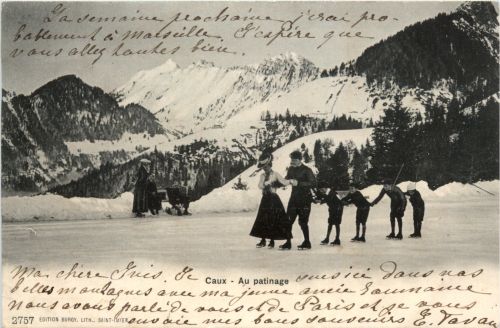 La semaine prochaine j'irai pro-
bablement à Marseille. J'espère que
vous allez toutes bien.
Caux - Au patinage
Ma chère Iris. Je suis ici dans nos
belles montagnes avec ma jeune ancienne
Nous avons parlé de vous de Paris et je vous
envoie mes bons souvenirs E.
2757 EDITION BURGY, LITH., SAINT-IMIER